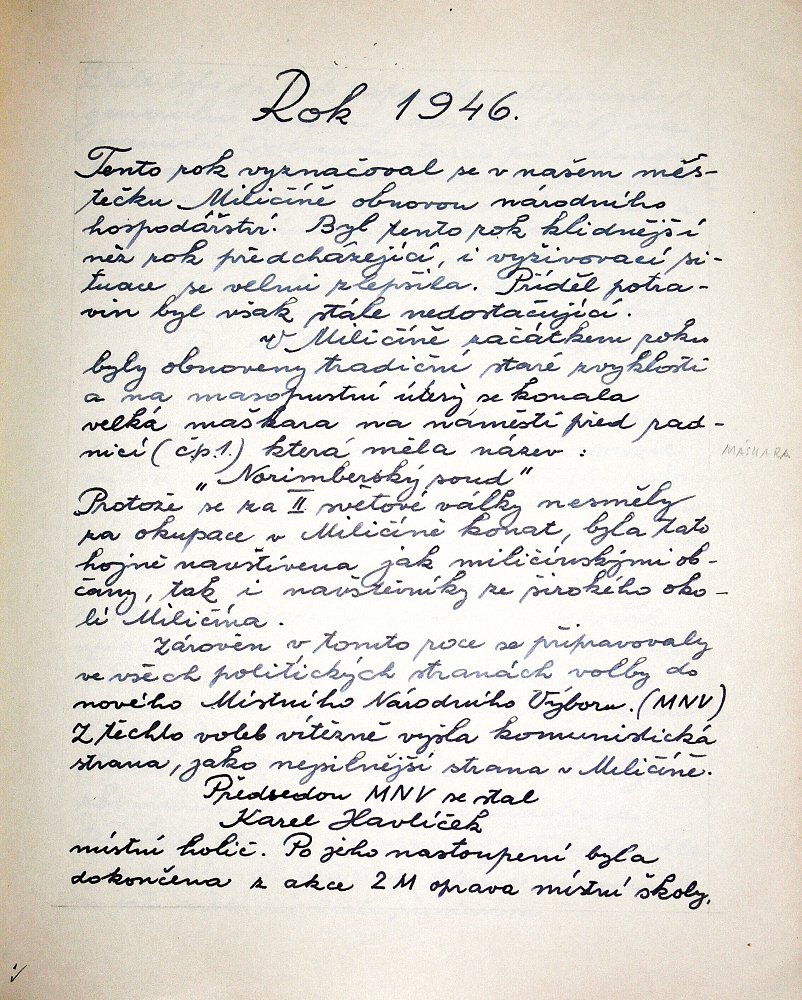 Rok 1946.
Tento rok vyznačoval se v našem měs-
tečku Miličíně obnovou národního
hospodářství. Byl tento rok klidnější
než rok předcházející, i vyživovací si-
tuace se velmi zlepšila. Příděl potra-
vin byl však stále nedostačující.
V Miličíně začátkem roku
byly obnoveny tradiční staré zvyklosti
a na masopustní úterý se konala
velká maškara na náměstí před rad-
nicí (čp.1.) která měla název :
MAŠKARA
„Norimberský soud"
Protože se za II světové války nesměly
za okupace v Miličíně konat, byla tato
hojně navštívena jak miličínskými ob-
čany, tak i navštěvníky ze širokého oko-
lí Miličína.
Zárověn v tomto roce se připravovaly
ve všech politických stranách volby do
nového Místního Národního Výboru. (MNV)
Z těchto voleb vítězně vyšla komunistická
strana, jako nejsilnější strana v Miličíně.
Předsedou MNV se stal
Karel Havlíček
místní holič. Po jeho nastoupení byla
dokončena z akce 2M oprava místní školy,